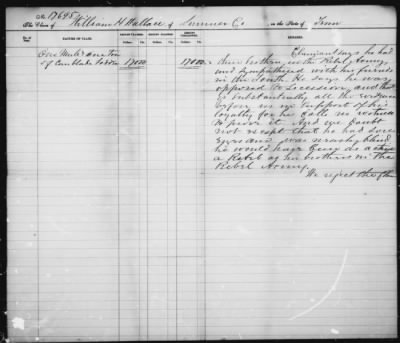 No. 17695
The Claim of William H Wallace of Sumner Co in the State of Tenn
No. of Item.
NATURE OF CLAIM.
AMOUNT CLAIMED.
AMOUNT ALLOWED.
AMOUNT DISALLOWED.
REMARKS.
Dollars. Cts. Dollars. Cts. Dollars. Cts.
One mule
170 00 170 00
Claimant says he had
brothers in the Rebel Army
and sympathised with his friends
in the South. He says he was
opposed to Secession, and that
is substantially all the evidence
before us in support of his
loyalty for he calls no witness
to prove it. And we doubt
not except that he had Sore
Eyes and was nearly blind
he would have been as
a Rebel as his brothers in the
Rebel Army.
We reject the